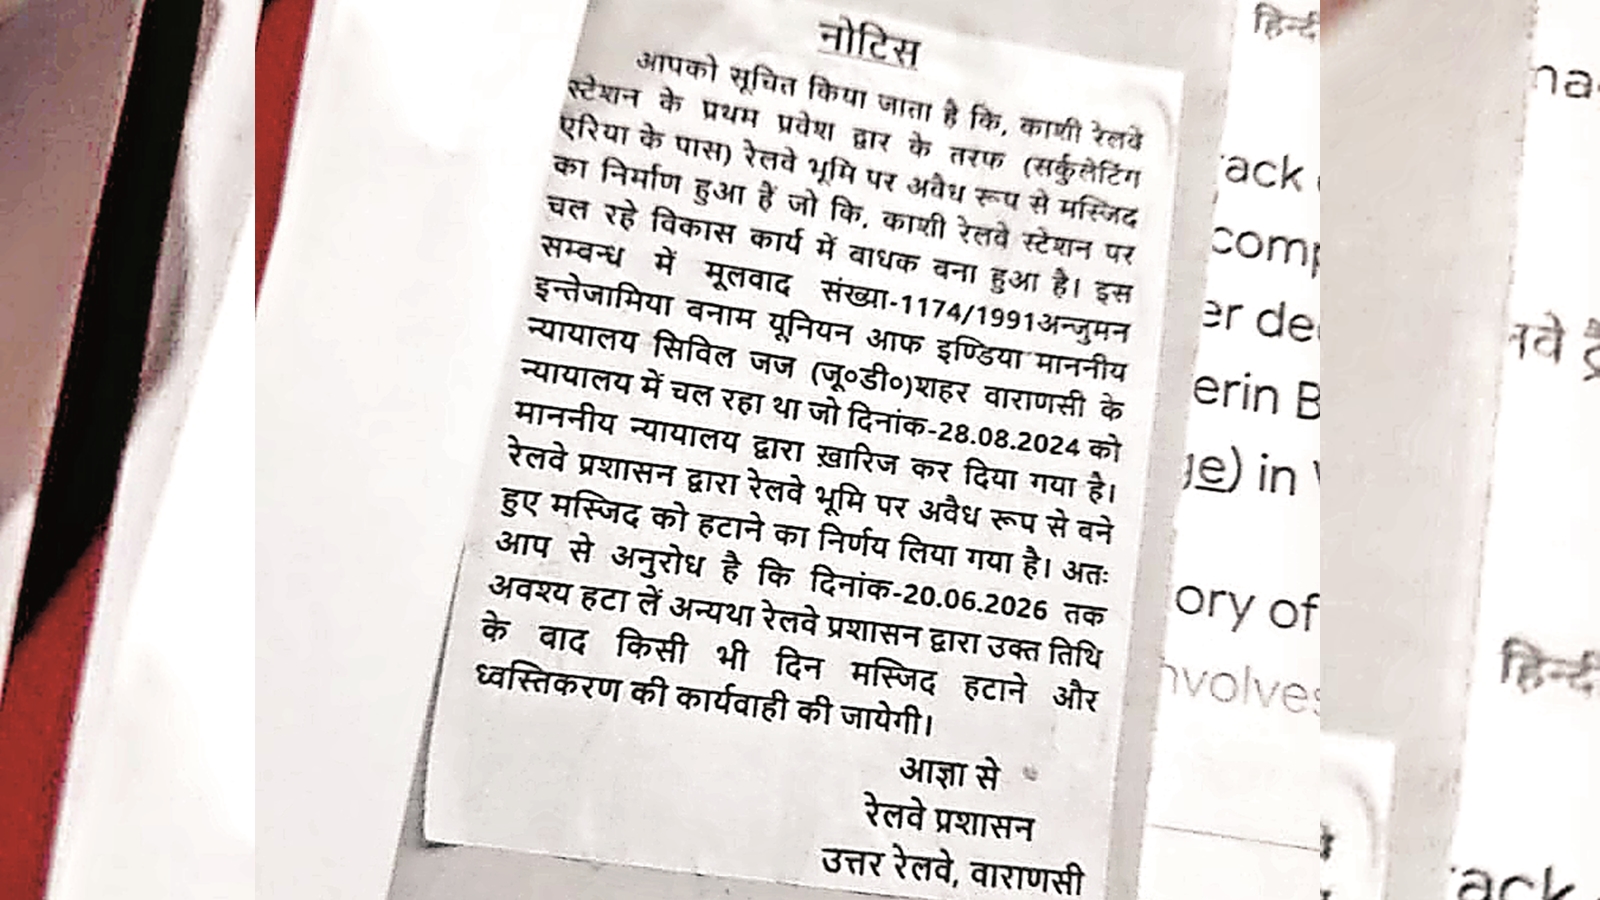 नोटिस
आपको सूचित किया जाता है कि, काशी रेलवे
स्टेशन के प्रथम प्रवेश द्वार के तरफ (सर्कुलेटिंग
एरिया के पास) रेलवे भूमि पर अवैध रूप से मस्जिद
का निर्माण हुआ हैं जो कि, काशी रेलवे स्टेशन पर
चल रहे विकास कार्य में वाधक वना हुआ है। इस
सम्वन्ध में मूलवाद संख्या-1174/1991अन्जुमन
इन्तेजामिया वनाम यूनियन आफ इण्डिया माननीय
न्यायालय सिविल जज (जू०डी०)शहर वाराणसी के
न्यायालय में चल रहा था जो दिनांक-28.08.2024 को
माननीय न्यायालय द्वारा ख़ारिज कर दिया गया है।
रेलवे प्रशासन द्वारा रेलवे भूमि पर अवैध रूप से वने
हुए मस्जिद को हटाने का निर्णय लिया गया है। अतः
आप से अनुरोध है कि दिनांक-20.06.2026 तक
अवश्य हटा लें अन्यथा रेलवे प्रशासन द्वारा उक्त तिथि
के वाद किसी भी दिन मस्जिद हटाने और
ध्वस्तिकरण की कार्यवाही की जायेगी।
आज्ञा से
रेलवे प्रशासन
उत्तर रेलवे, वाराणसी
हिन्द
ack
comp
er de
erin B
ge) in
ory of
nvolves
na
लवे
हिन्दी
ack